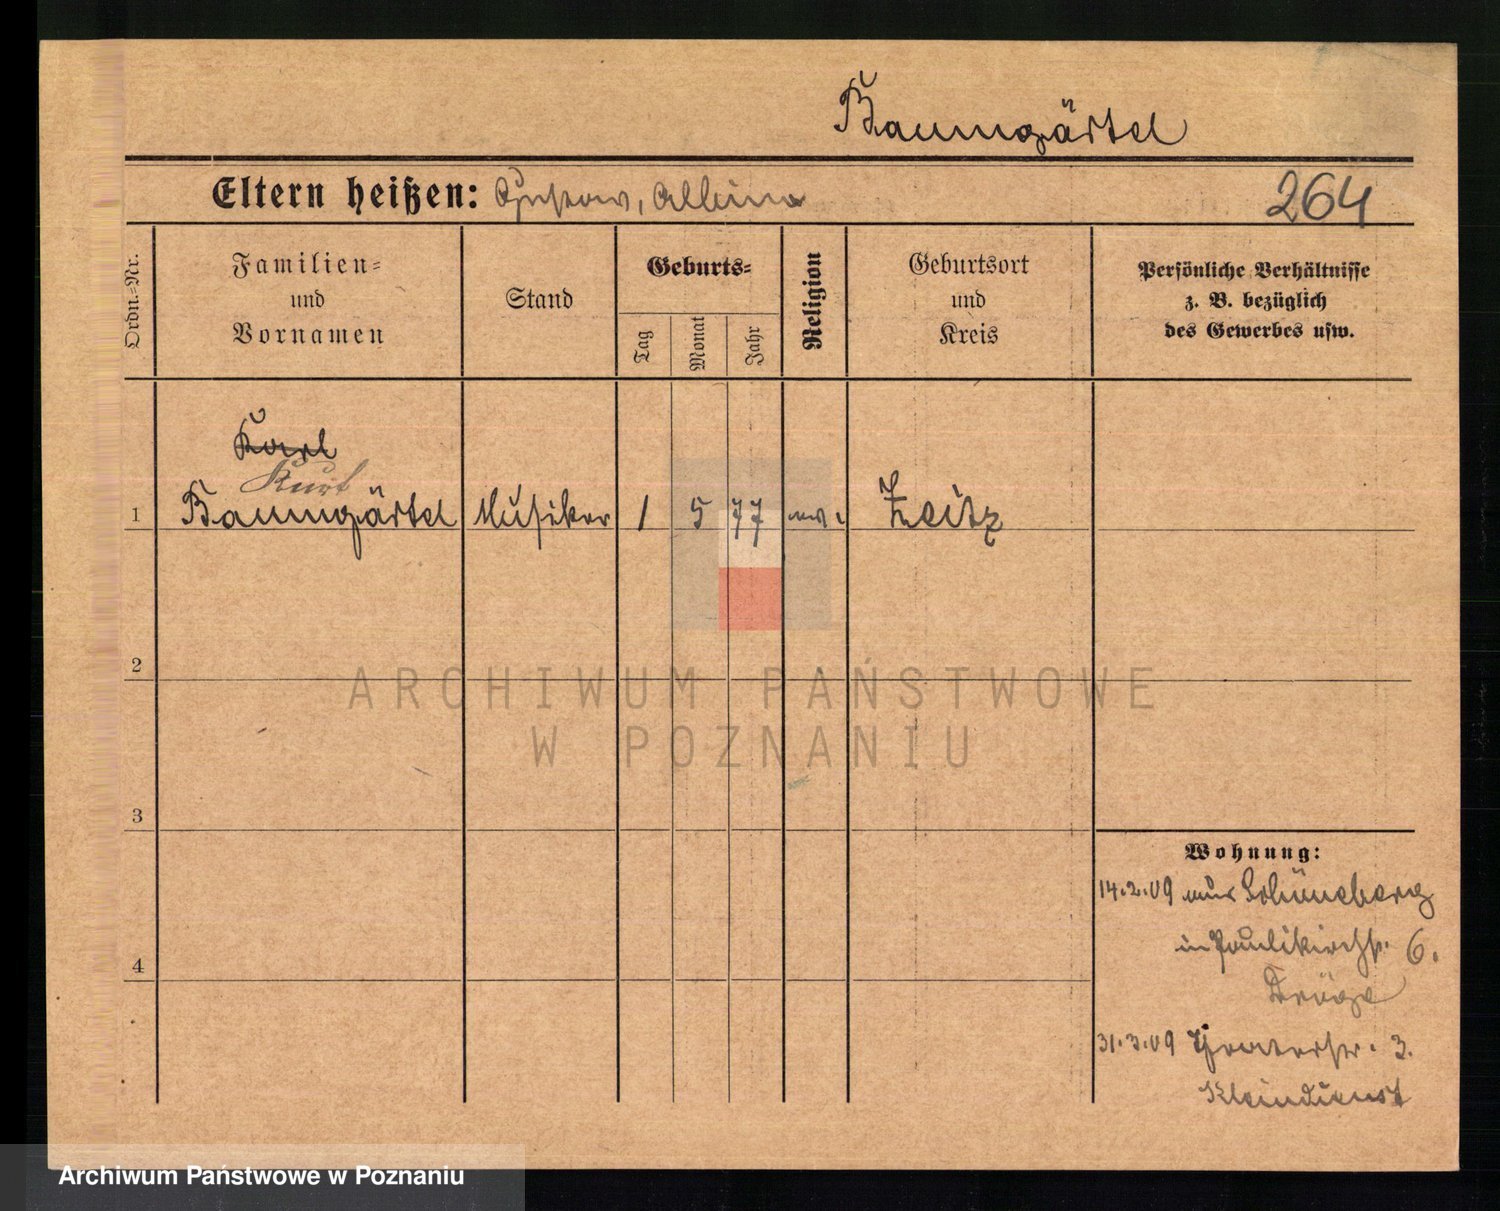 Baumgärtel
Eltern heißen: Gustav, Albina
264
Ordn.-Nr.
Familien-
und
Vornamen
Stand
Geburts-
Tag
Monat
Jahr
Religion
Geburtsort
und
Kreis
Persönliche Verhältnisse
z. B. bezüglich
des Gewerbes usw.
Karl
Kurt
1 Baumgärtel Musiker 1 5 77 ev. Zeitz
2
3
4
Wohnung:
14.2.09 aus Schöneberg
in Paulikirchstr. 6.
Dröge
31.3.09 3.
Kleindienst
ARCHIWUM PAŃSTWOWE
W POZNANIU
Archiwum Państwowe w Poznaniu